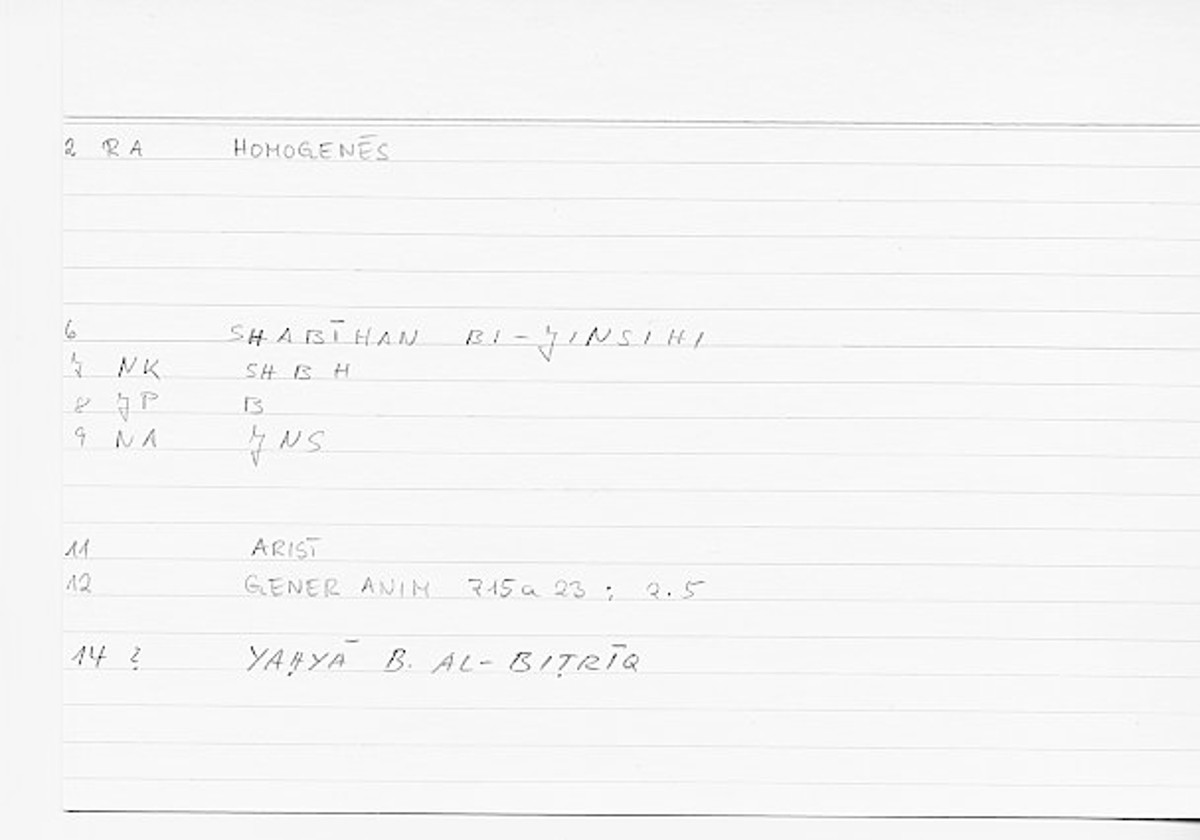 2 RA HOMOGENĒS
6 SHABĪHAN BI-JINSIHI
7 NK SH B H
8 JP B
9 NA JNS
11 ARIST
12 GENER ANIM 715a 23 ; 2.5
14 ? YAḤYĀ B. AL-BIṬRĪQ